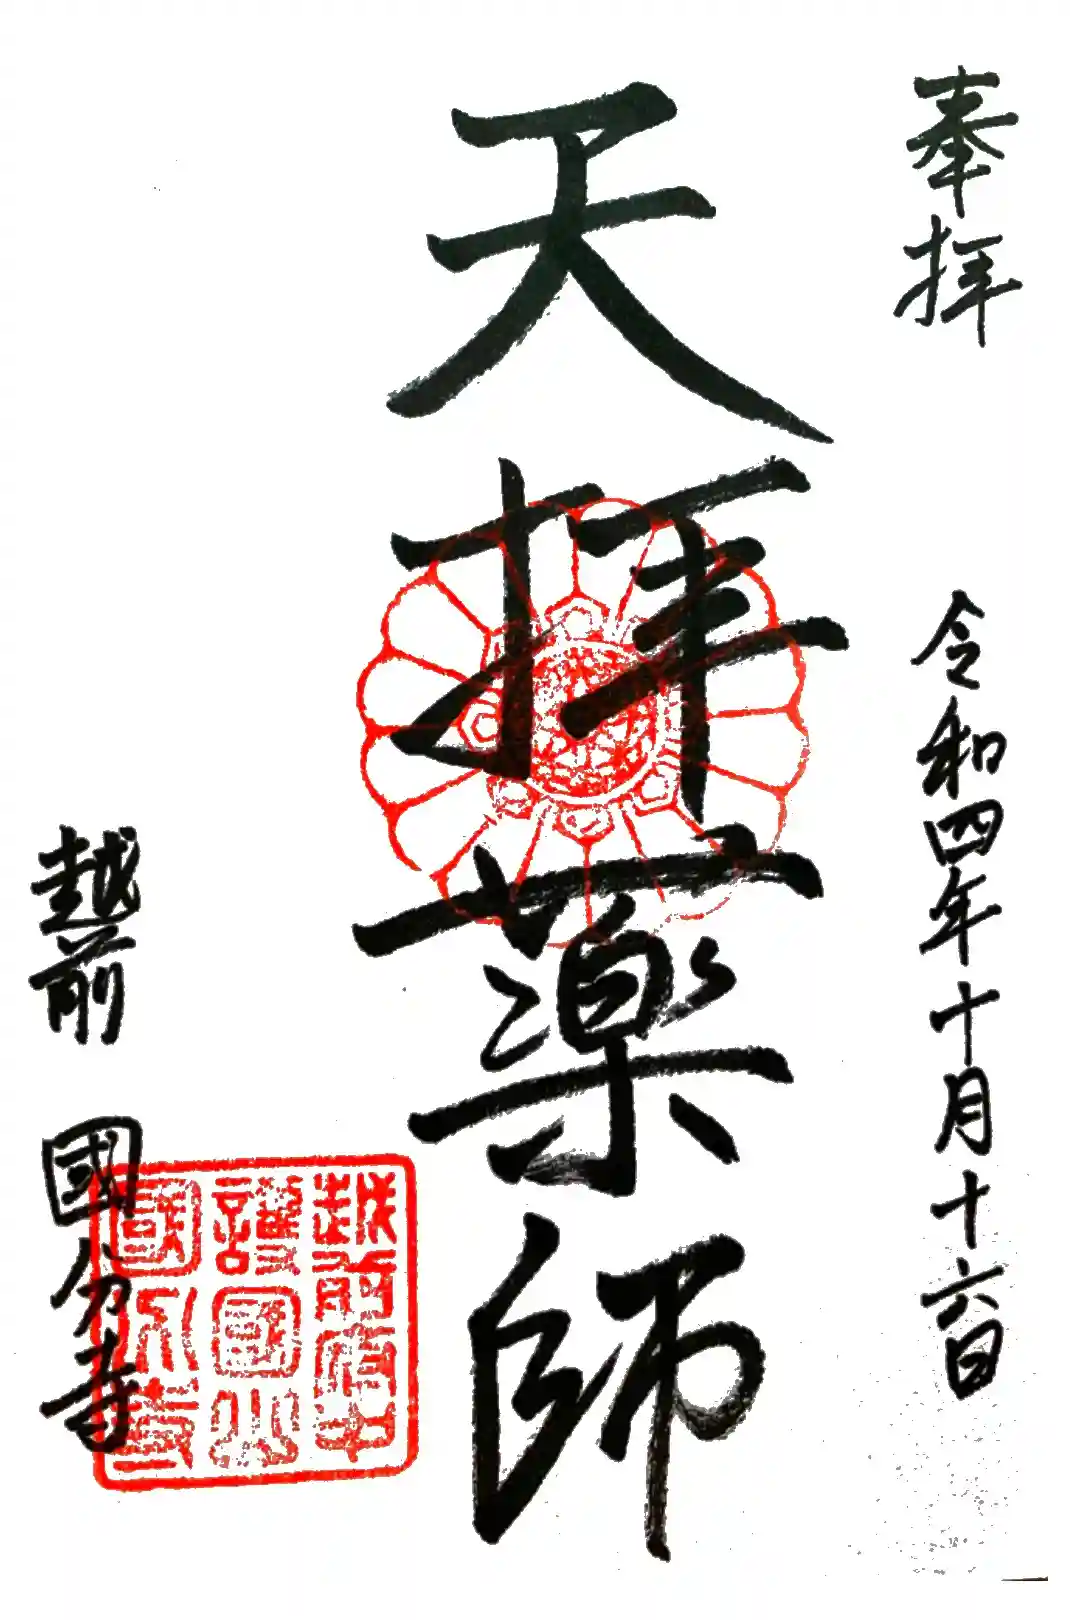 奉拝
令和四年十月十六日
天拝薬師
越前 國分寺
越前府中
護國山
國分寺